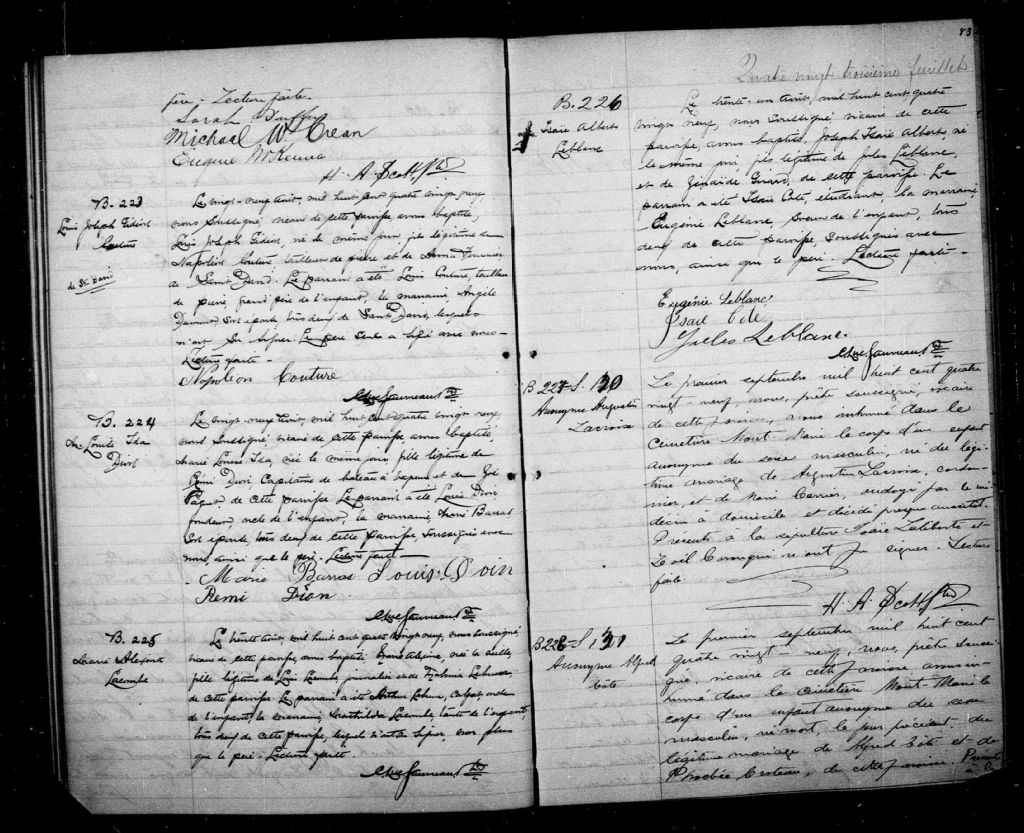 père. Lecture faite.
Sarah
Michael W Crean
Eugene McKenna
H. A. Scott Ptre
B. 223
Louis Joseph
Couture
de St.
Le vingt-neuf août, mil huit cent quatre vingt neuf,
nous soussigné vicaire de cette paroisse avons baptisé,
Louis Joseph né le même jour, fils légitime de
Napoléon Couture tailleur de pierre et de Fournier
de Saint David. Le parrain a été Louis Couture, tailleur
de pierre, grand père de l'enfant, la marraine, Angèle
son épouse, tous deux de Saint David, lesquels
n'ont su signer. Le père seul a signé avec nous.
Lecture faite.
Napoléon Couture
B. 224
M. Louise Ida
Dion
Le vingt-neuf août, mil huit cent quatre vingt neuf
nous soussigné vicaire de cette paroisse avons baptisé,
Marie Louise Ida, née le même jour fille légitime de
Rémi Dion Capitaine de bateau à vapeur et de
de cette paroisse. Le parrain a été Louis Dion
fondeur, oncle de l'enfant, la marraine, Marie Barras
son épouse, tous deux de cette paroisse, soussignés avec
nous, ainsi que le père. Lecture faite.
Marie Barras Louis Doin
Remi Dion
B. 225
Marie
Lacombe
Le trente août, mil huit cent quatre vingt neuf, nous soussigné
vicaire de cette paroisse, avons baptisé Marie née la veille,
fille légitime de Louis Lacombe, journalier et de
de cette paroisse. Le parrain a été Arthur
de l'enfant, la marraine, Lacombe, tante de l'enfant,
tous deux de cette paroisse, lesquels n'ont su signer, non plus
que le père. Lecture faite.
83
Quatre vingt troisième feuillet
B. 226
J. Isaïe Albert
Leblanc
Le trente-un août, mil huit cent quatre
vingt neuf, nous soussigné vicaire de cette
paroisse, avons baptisé, Joseph Isaïe Albert, né
le même jour, fils légitime de Jules Leblanc,
et de Zénaïde Girard, de cette paroisse. Le
parrain a été Isaïe Côté, étudiant, la marraine,
Eugénie Leblanc, soeur de l'enfant, tous
deux de cette paroisse, soussignés avec
nous, ainsi que le père. Lecture faite.
Eugénie Leblanc
Isaïe Côté
Jules Leblanc.
B 227 S. 130
Anonyme Augustin
Lacroix
Le premier septembre mil huit cent quatre
vingt-neuf, nous, prêtre soussigné, vicaire
de cette paroisse, avons inhumé dans le
cimetière Mont-Marie le corps d'un enfant
anonyme du sexe masculin, né du légi-
time mariage de Augustin Lacroix, cordon-
nier, et de Marie Carrier, ondoyé par le mé-
decin à domicile et décédé presque aussitôt.
Présents à la sépulture Isaïe Laliberté et
Zoël qui n'ont pu signer. Lecture
faite.
H. A. Scott Ptre
B 228 S 131
Anonyme Alfred
Côté
Le premier septembre mil huit cent
quatre vingt-neuf, nous, prêtre soussi-
gné, vicaire de cette paroisse avons in-
humé dans le cimetière Mont-Marie le
corps d'un enfant anonyme du sexe
masculin, né mort, le jour précédent du
légitime mariage de Alfred Côté et de
Phoebée Croteau, de cette paroisse. Présents
à la